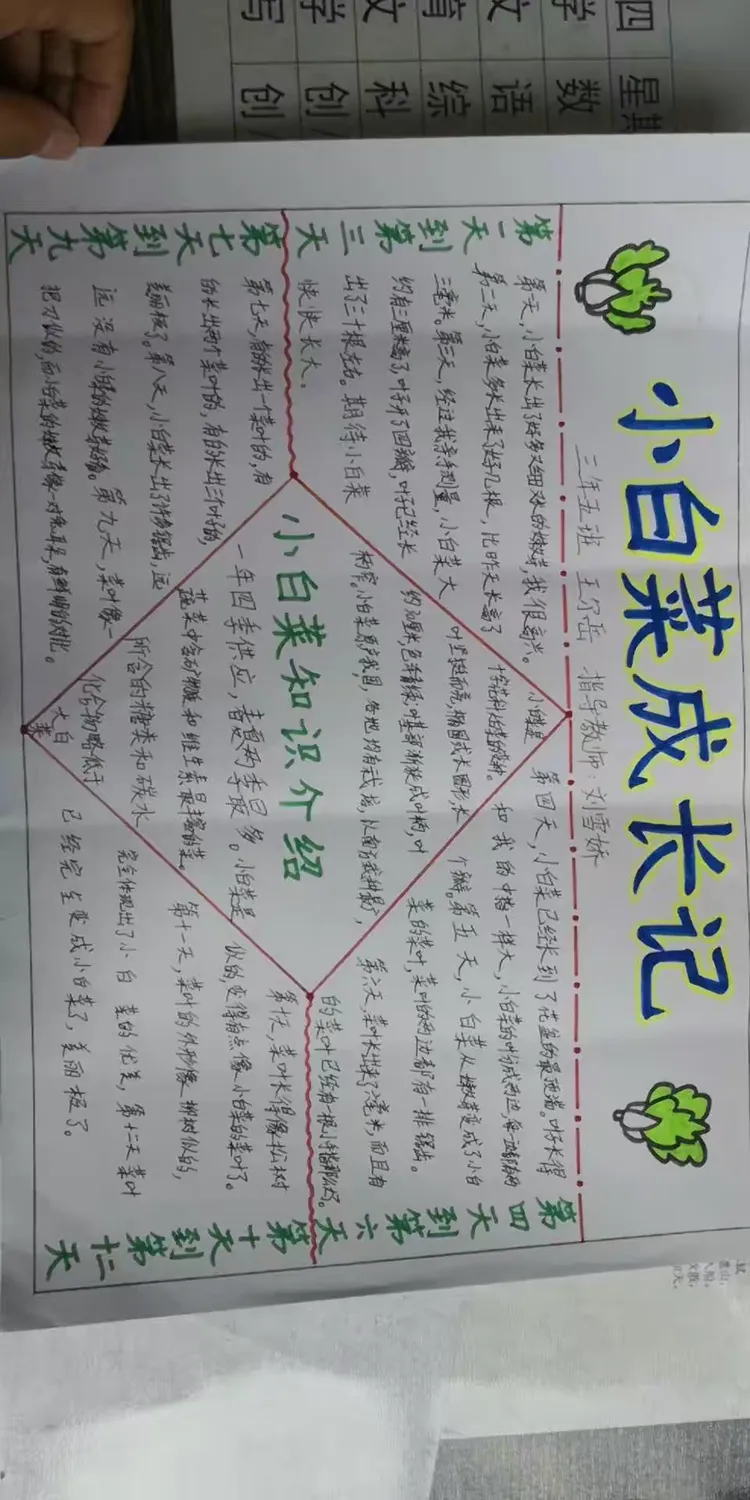 小白菜成长记
三年五班 王尔岳 指导教师：刘雪娇
第一天到第三天
第一天，小白菜长出了好多又细又小的嫩芽，我很高兴。
第二天，小白菜多长出来了好几根，比昨天长高了
三毫米。第三天，经过我亲手测量，小白菜大
约有三厘米高了，叶子开了四瓣，叶子已经长
出了三十根左右。期待小白菜
快快长大。
第四天到第六天
第四天，小白菜已经长到了花盆的最顶端。叶子长得
和我的中指一样大，小白菜的叶分成两边，每边都有两
个瓣。第五天，小白菜从嫩芽变成了小白
菜的菜叶，菜叶的两边都有一排锯齿。
第六天，菜叶长出来了六毫米，而且有
的菜叶已经有一根小手指那么高。
小白菜知识介绍
小白菜是
十字花科芸薹属
叶坚挺而亮，椭圆或木圆形长
约 厘米，色有青绿；叶基部渐狭成叶柄，叶
柄窄。小白菜原产我国，各地均有栽培，以南方栽种最广，
一年四季供应，春夏两季最多。小白菜是
蔬菜中含矿物质和维生素最丰富的菜。
所含的糖类和碳水
化合物略低于
大白
菜
第七天到第九天
第七天，有的长出一个菜叶的，有
的长出两个菜叶的，有的长出三个叶子的，
美丽极了。第八天，小白菜长出了许多锯齿，远
远没有小时候的嫩芽好看。第九天，菜叶像一
把刀似的，而小白菜的嫩芽像一对兔耳朵，有鲜明的对比。
第十天到第十二天
第十天，菜叶长得像松树
似的，变得有点像小白菜的菜叶了。
第十一天，菜叶的外形像柳树似的，
完全体现出了小白菜的优美，第十二天菜叶
已经完全变成小白菜了，美丽极了。
四
学
文
育
文
学
写
星期
数
语
综
科
创
创